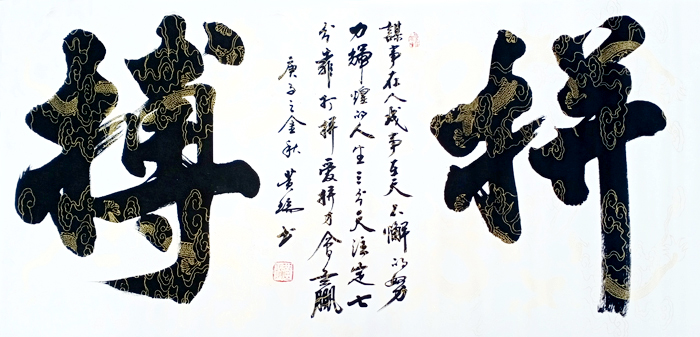 拼搏
謀事在人成事在天不懈的努
力輝煌的人生三分天注定七
分靠打拼愛拼才會贏
庚子之金秋黄书